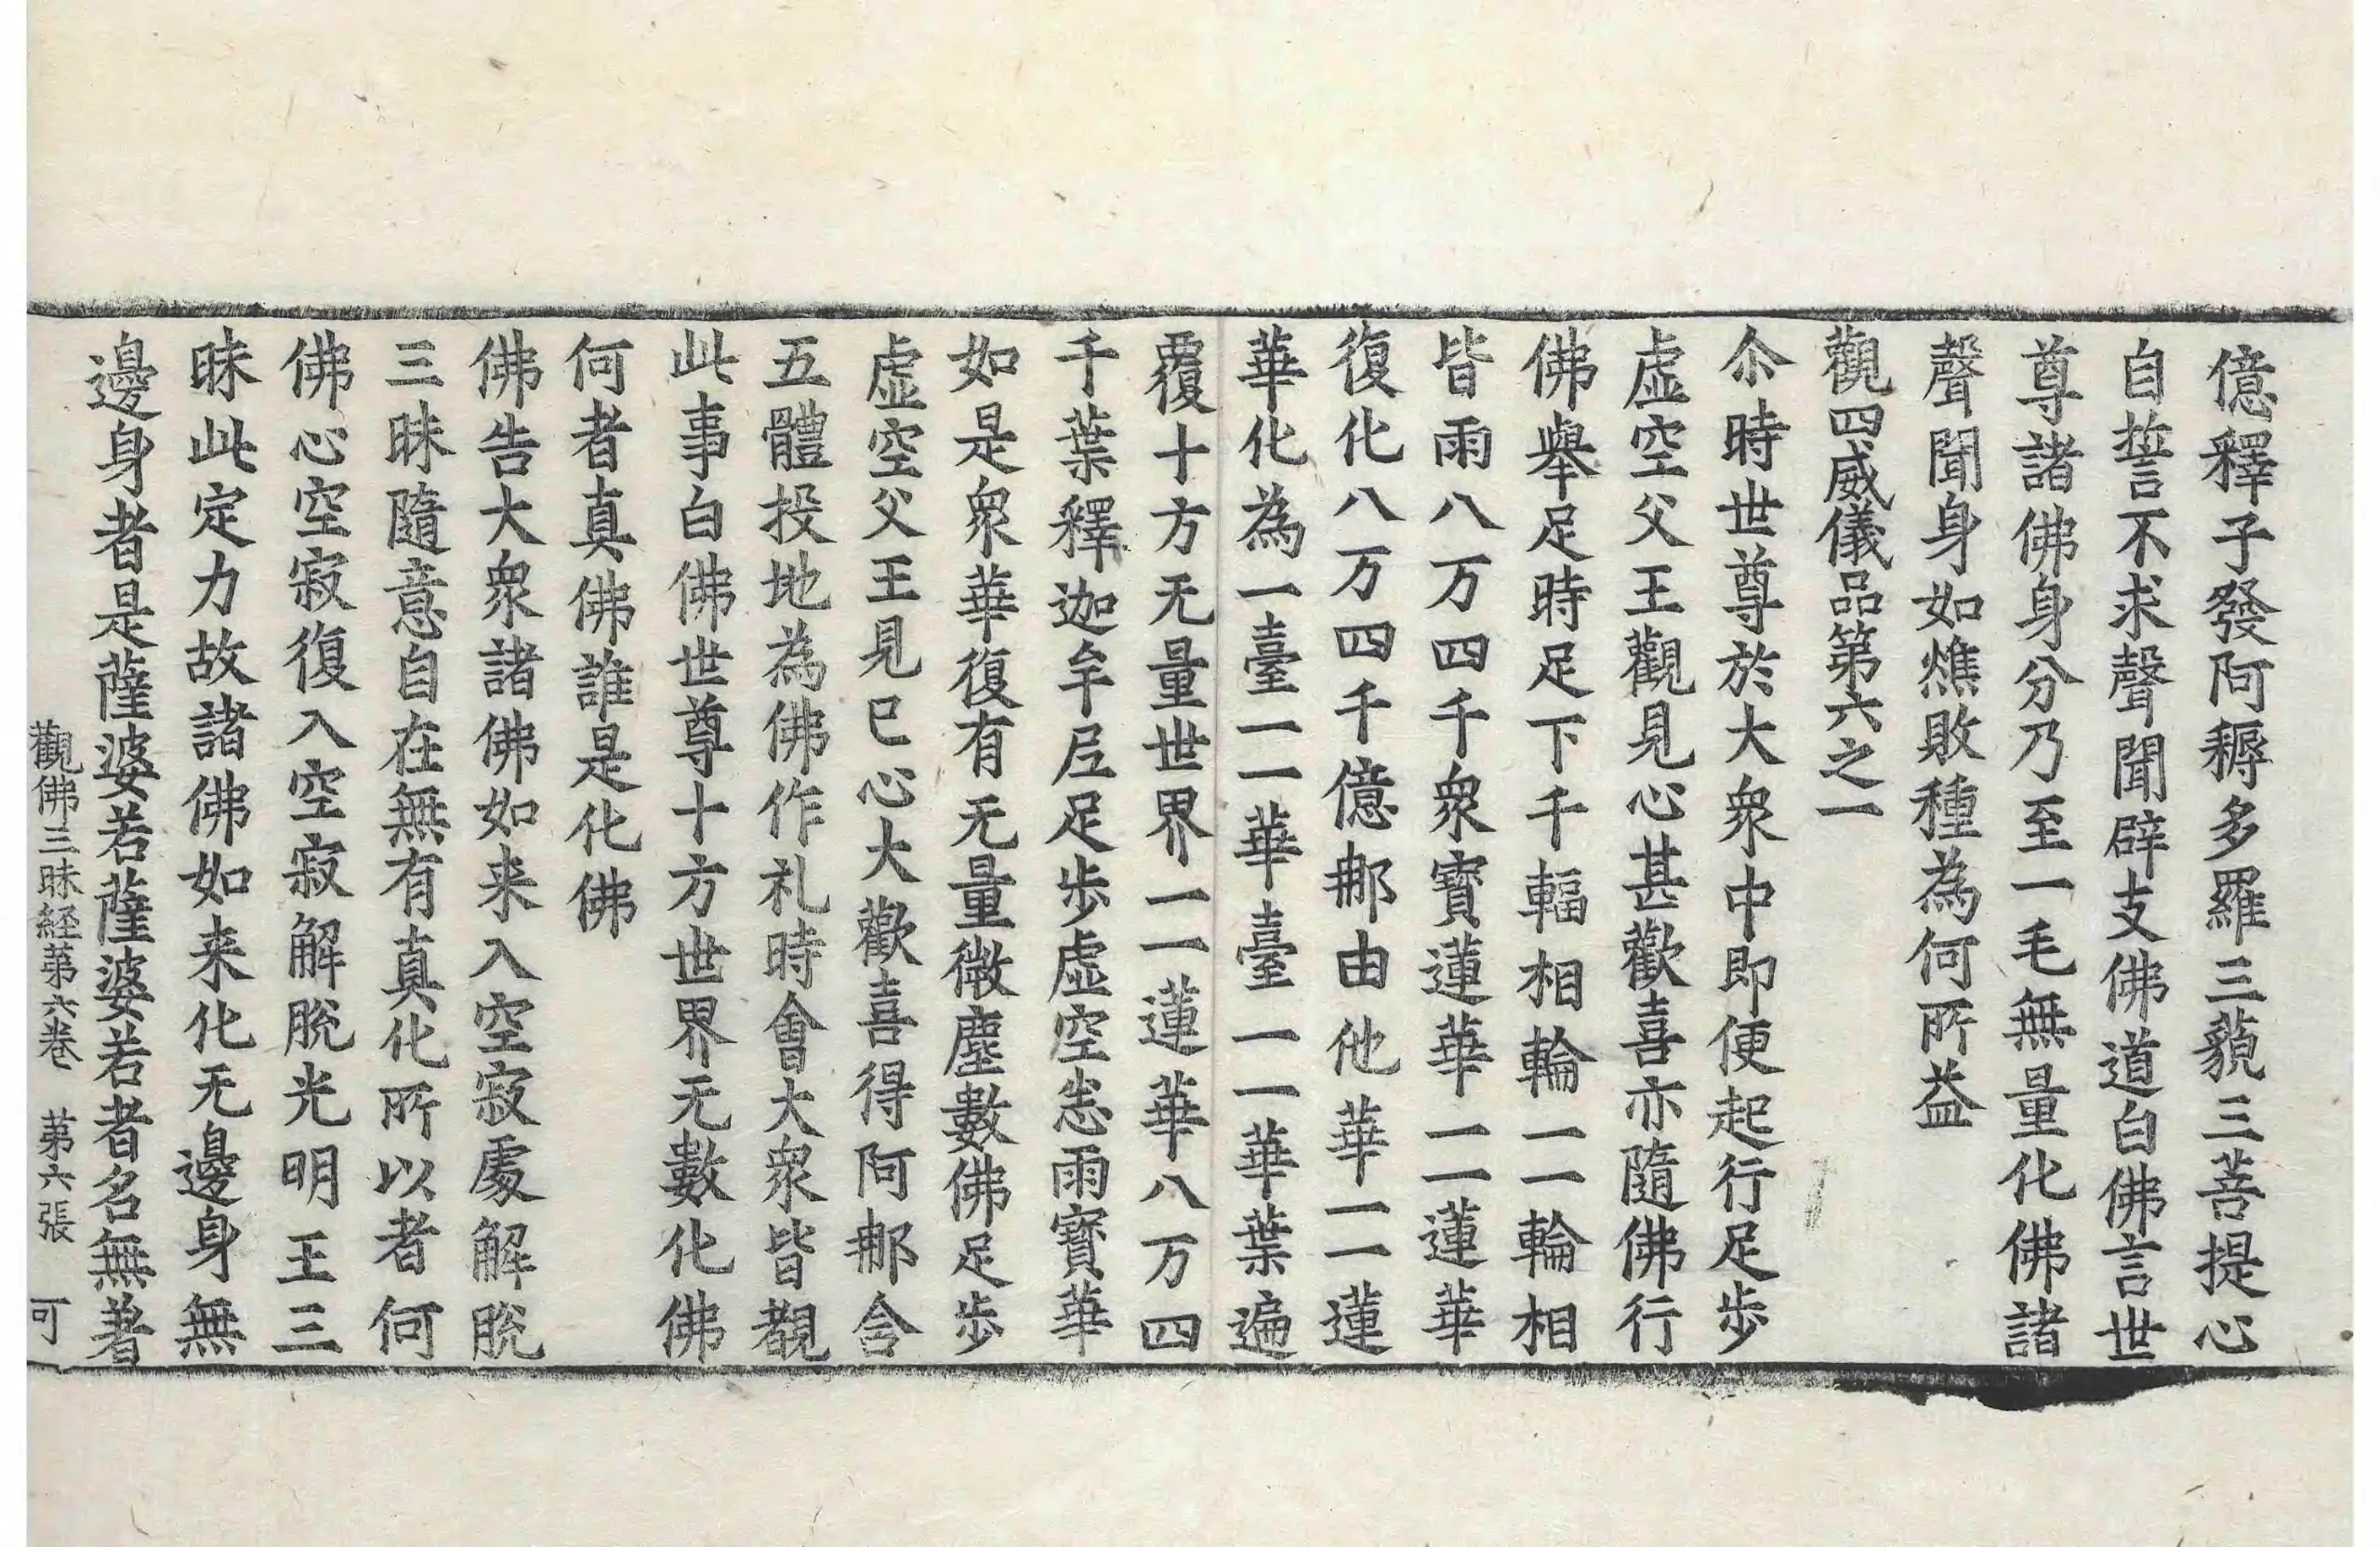 億釋子發阿耨多羅三藐三菩提心
自誓不求聲聞辟支佛道白佛言世
尊諸佛身分乃至一毛無量化佛諸
聲聞身如燋敗種為何所益
觀四威儀品第六之一
尒時世尊於大衆中即便起行足步
虛空父王觀見心甚歡喜亦隨佛行
佛舉足時足下千輻相輪一一輪相
皆雨八万四千衆寶蓮華一一蓮華
復化八万四千億那由他華一一蓮
華化為一臺一一華臺一一華葉遍
覆十方无量世界一一蓮華八万四
千葉釋迦牟尼足步虛空悉雨寶華
如是衆華復有无量微塵數佛足步
虛空父王見已心大歡喜得阿那含
五體投地為佛作礼時會大衆皆覩
此事白佛世尊十方世界无數化佛
何者真佛誰是化佛
佛告大衆諸佛如来入空寂處解脫
三昧隨意自在無有真化所以者何
佛心空寂復入空寂解脫光明王三
昧此定力故諸佛如来化无邊身無
邊身者是薩婆若薩婆若者名無著
觀佛三昧経苐六卷 苐六張 可